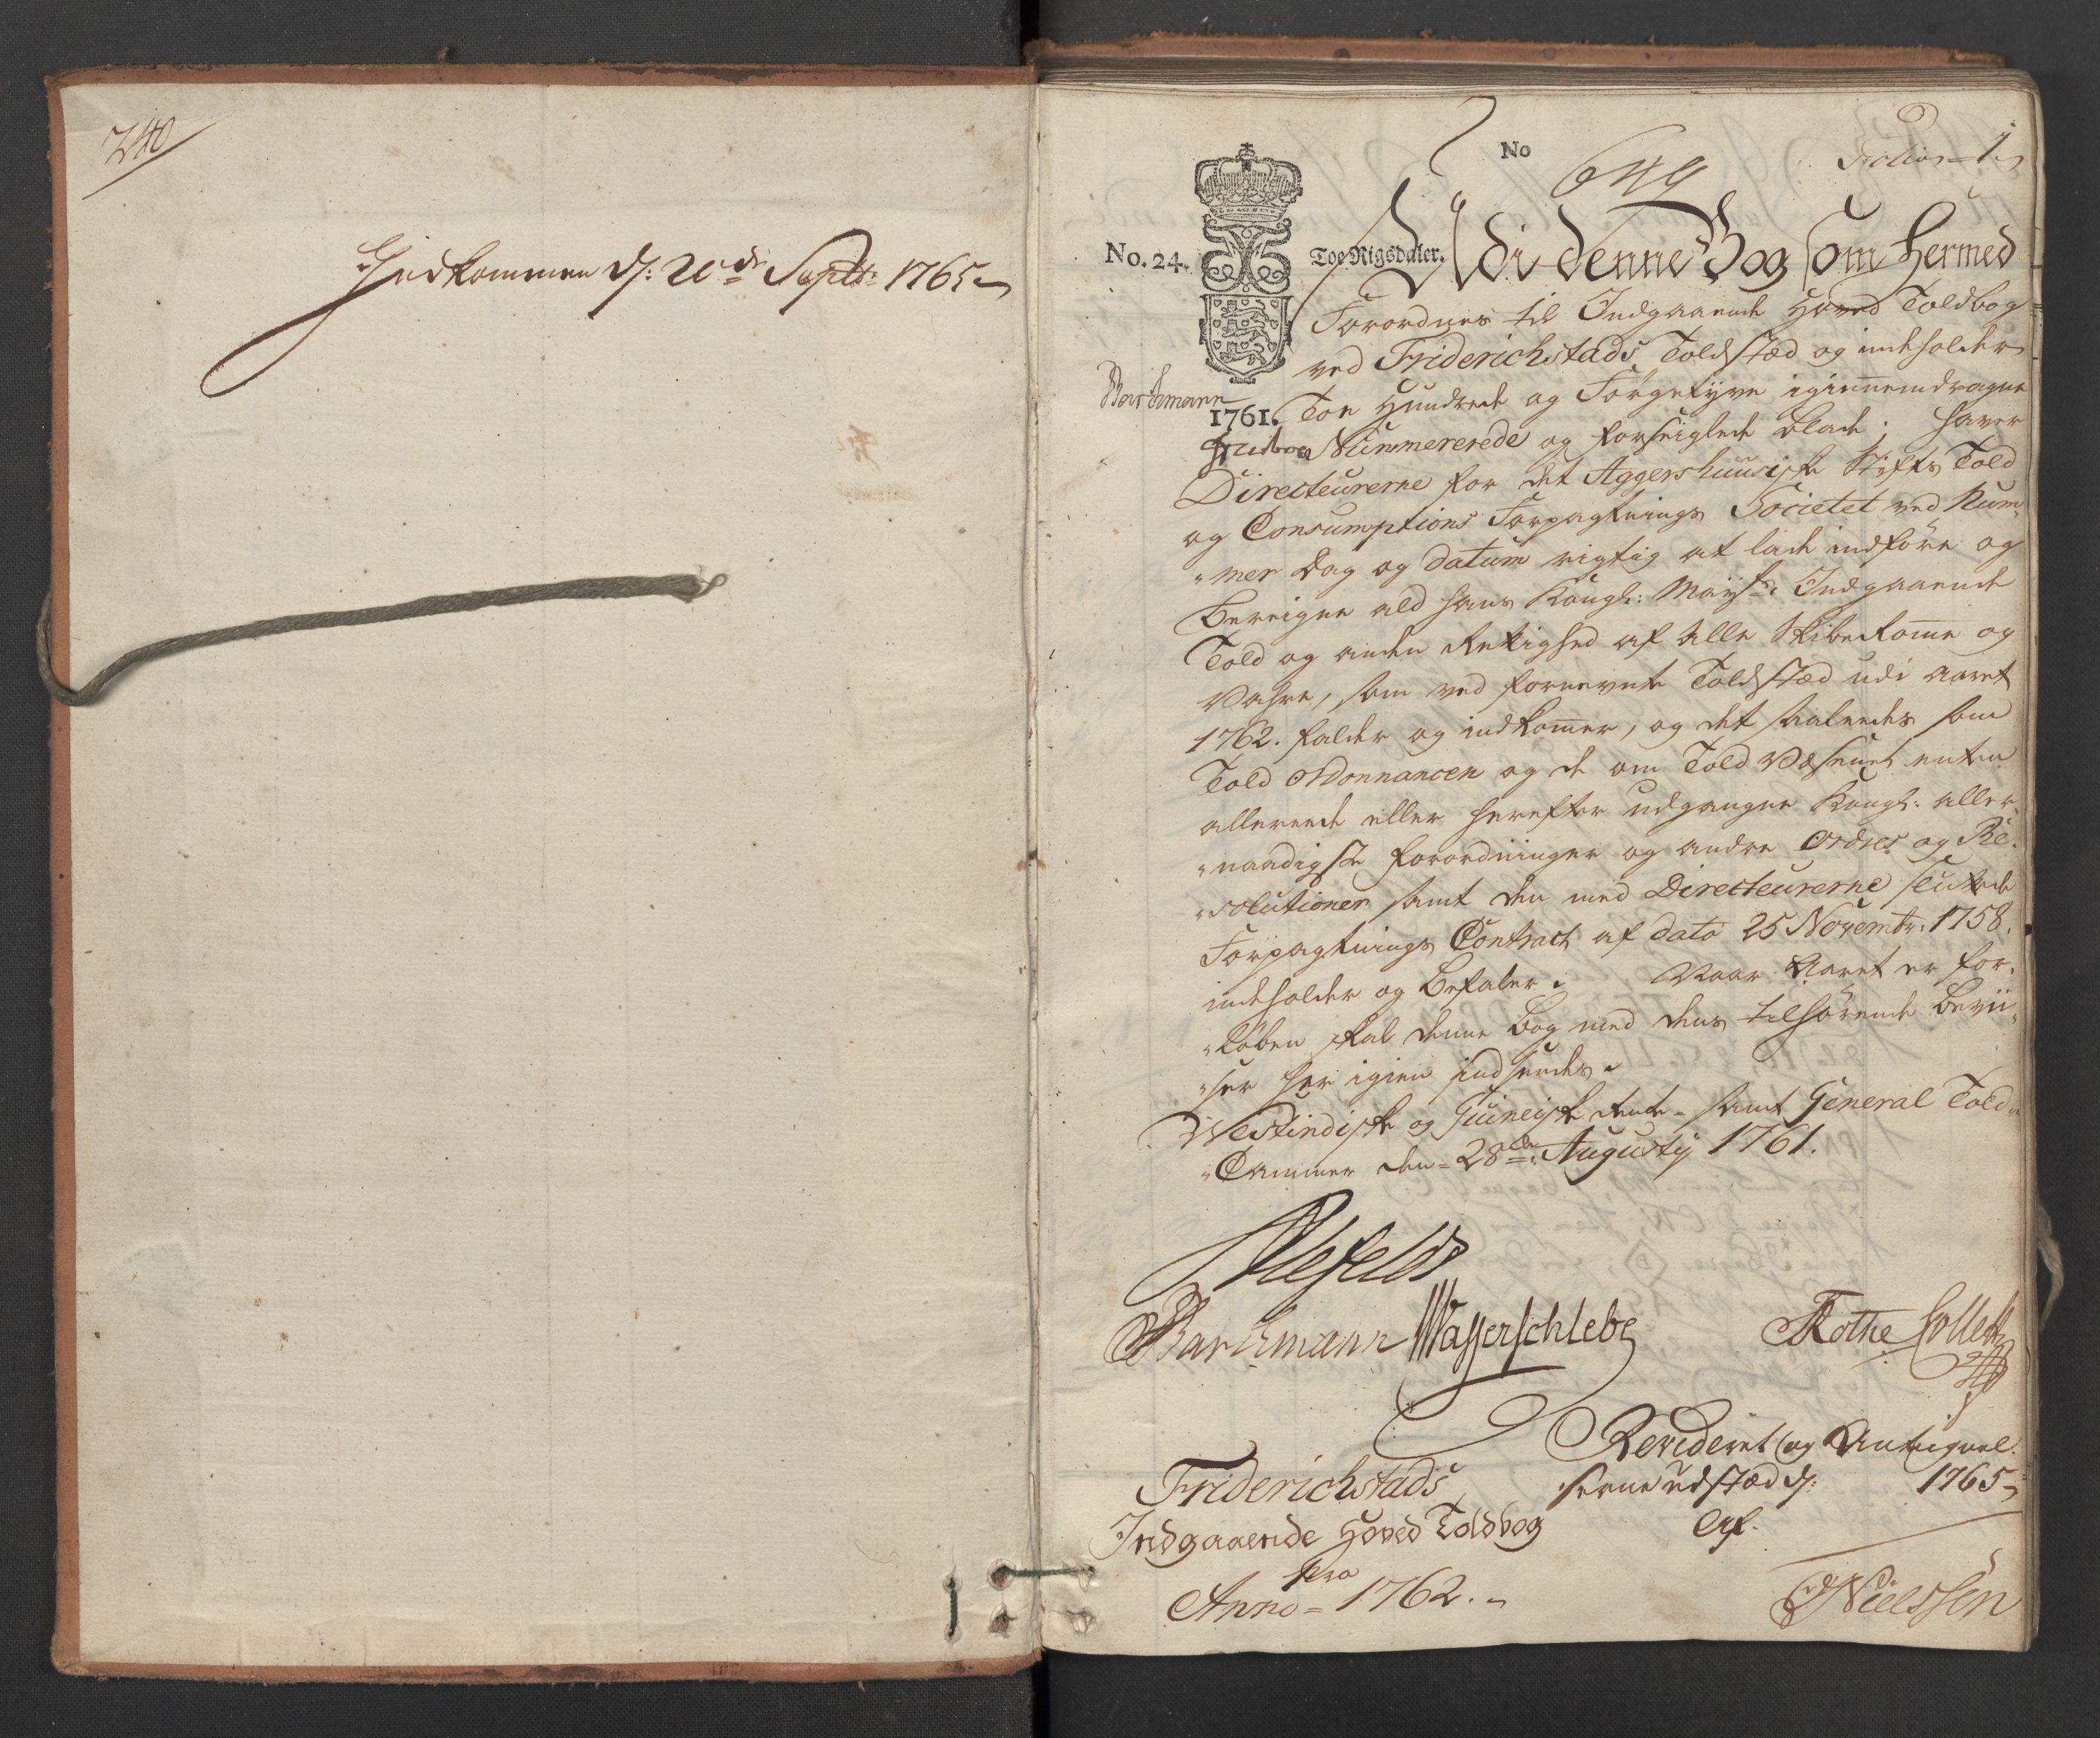 240
Indkommen d: 20de Septbr 1765
No
649
Folio 1
No. 24.
Toe Rigsdaler.
1761.
Barchmann
Udi denne Bog som hermed
Forordnes til Indgaaende Hoved Toldbog
ved Friderichstads Toldstæd og indeholder
Toe Hundrede og Förgetyve igiennemdragne
Nummererede og forseiglede blade; haver
Directeurerne for det Aggershuusiske Stifts Told
og Consumptions Forpagtnings Societet ved Num„
„mer Dag og Datum rigtig at lade indföre og
bereigne ald hans Kongl: Mayts: Indgaaende
Told og anden Rettighed af alle Skiberomme og
Vahre, som ved fornevnte Toldstæd udi aaret
1762. falder og indkommer, og det saaledes som
Told Ordonnancen og de om Told Væsenet enten
allereede eller herefter udgangne Kongl. aller„
„naadigste forordninger og andre Ordres og Re„
„solutioner samt den med Directeurerne sluttede
Forpagtnings Contract af dato 25 Novembr. 1758.
indeholder og befaler. Naar Aaret er for„
„löben skal denne bog med dens tilhörende bevii„
„ser her igien indsendes.
Westindiske og Guineiske Rente- samt General Told
„Cammer den 28de Augusty 1761.
Alefeldt
Barchmann Wasserschlebe Rothe Collett
Friderichstads
Indgaaende Hoved Toldbog
pro
Anno 1762.
Revideret og Antegnel„
serne udstæd d: 1765
af
Nielssen